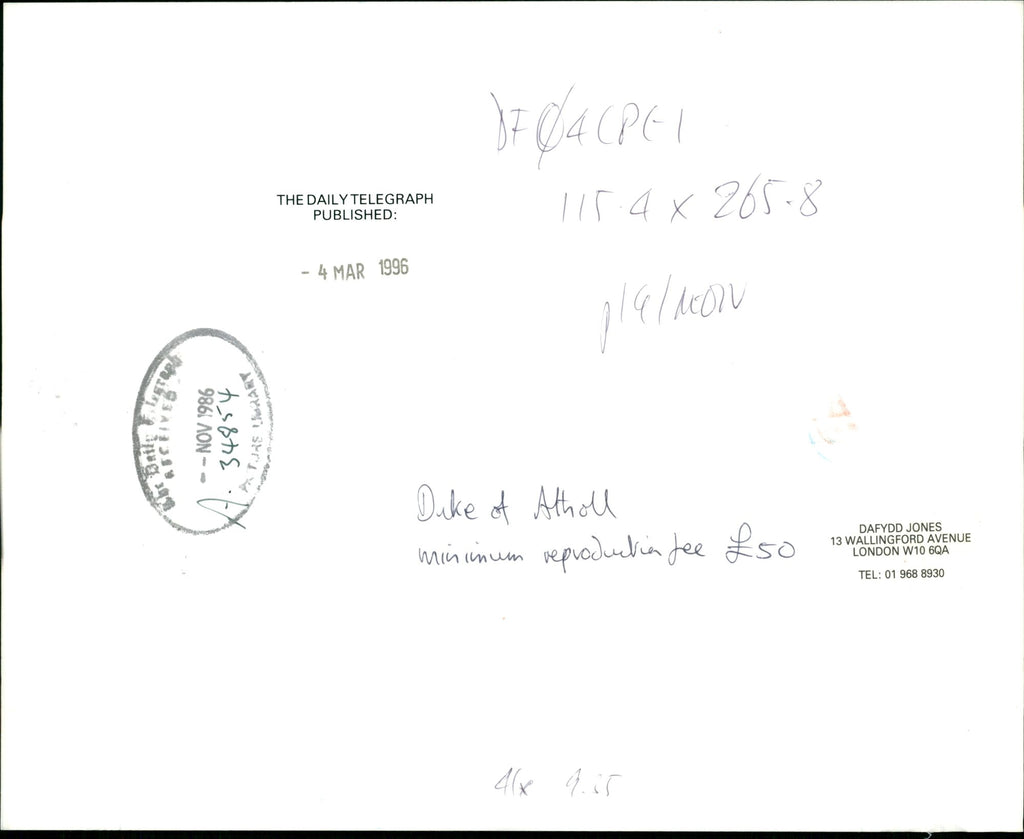 DF04CPE1
THE DAILY TELEGRAPH
PUBLISHED:
115.4 x 265.8
- 4 MAR 1996
p19/MON
The Daily Telegraph
RECEIVED
-- NOV 1986
A. 34854
PICTURES LIBRARY
Duke of Atholl
minimum reproduction fee £50
DAFYDD JONES
13 WALLINGFORD AVENUE
LONDON W10 6QA
TEL: 01 968 8930